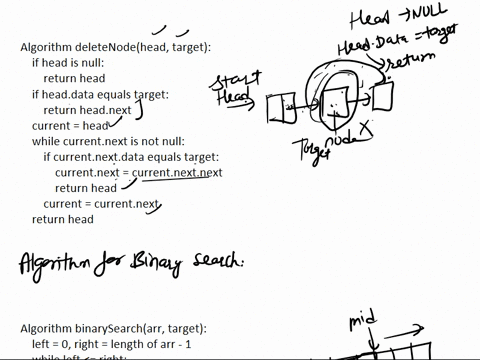 Head → NULL
Head.Data = target
return
Start
Head
Target node X
Algorithm deleteNode(head, target):
if head is null:
return head
if head.data equals target:
return head.next
current = head
while current.next is not null:
if current.next.data equals target:
current.next = current.next.next
return head
current = current.next
return head
Algorithm for Binary Search:
mid
Algorithm binarySearch(arr, target):
left = 0, right = length of arr - 1
while left <= right: